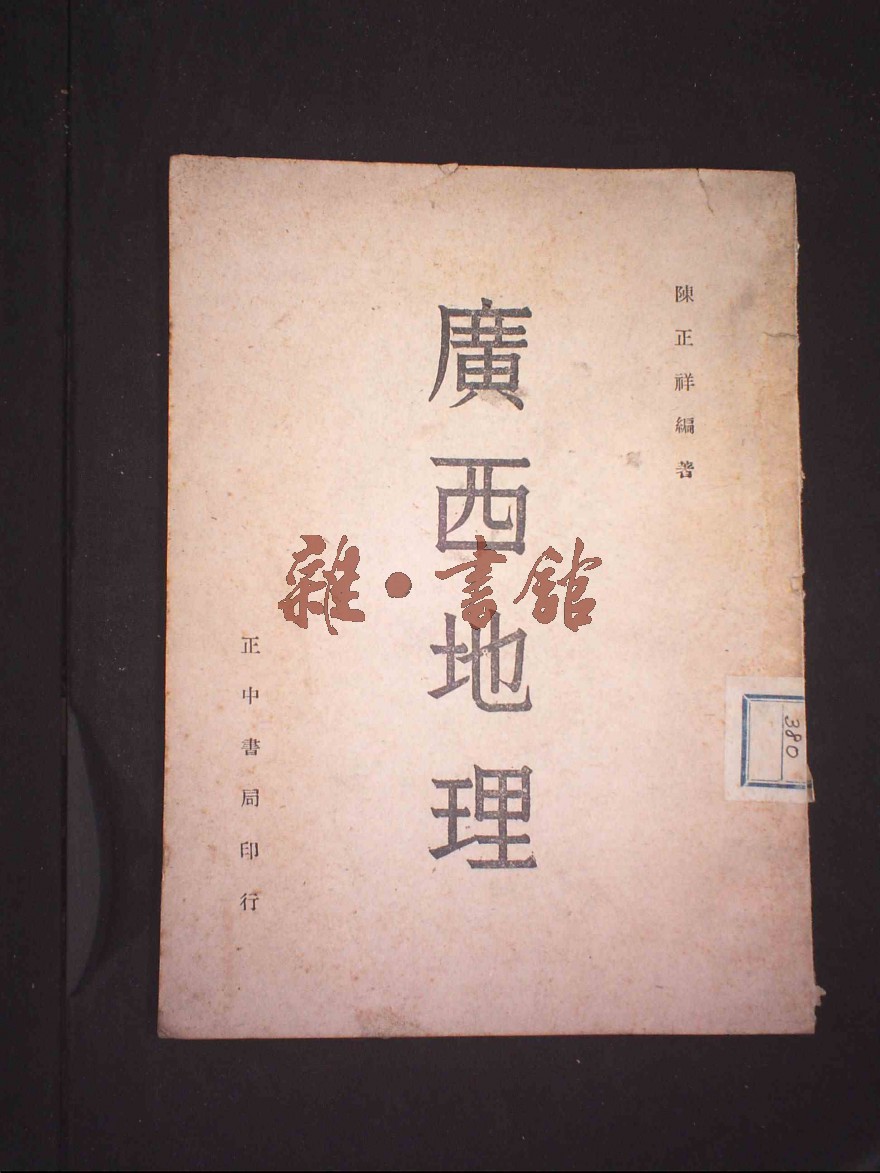 陳正祥編著
廣西地理
正中書局印行
雜·書館
380